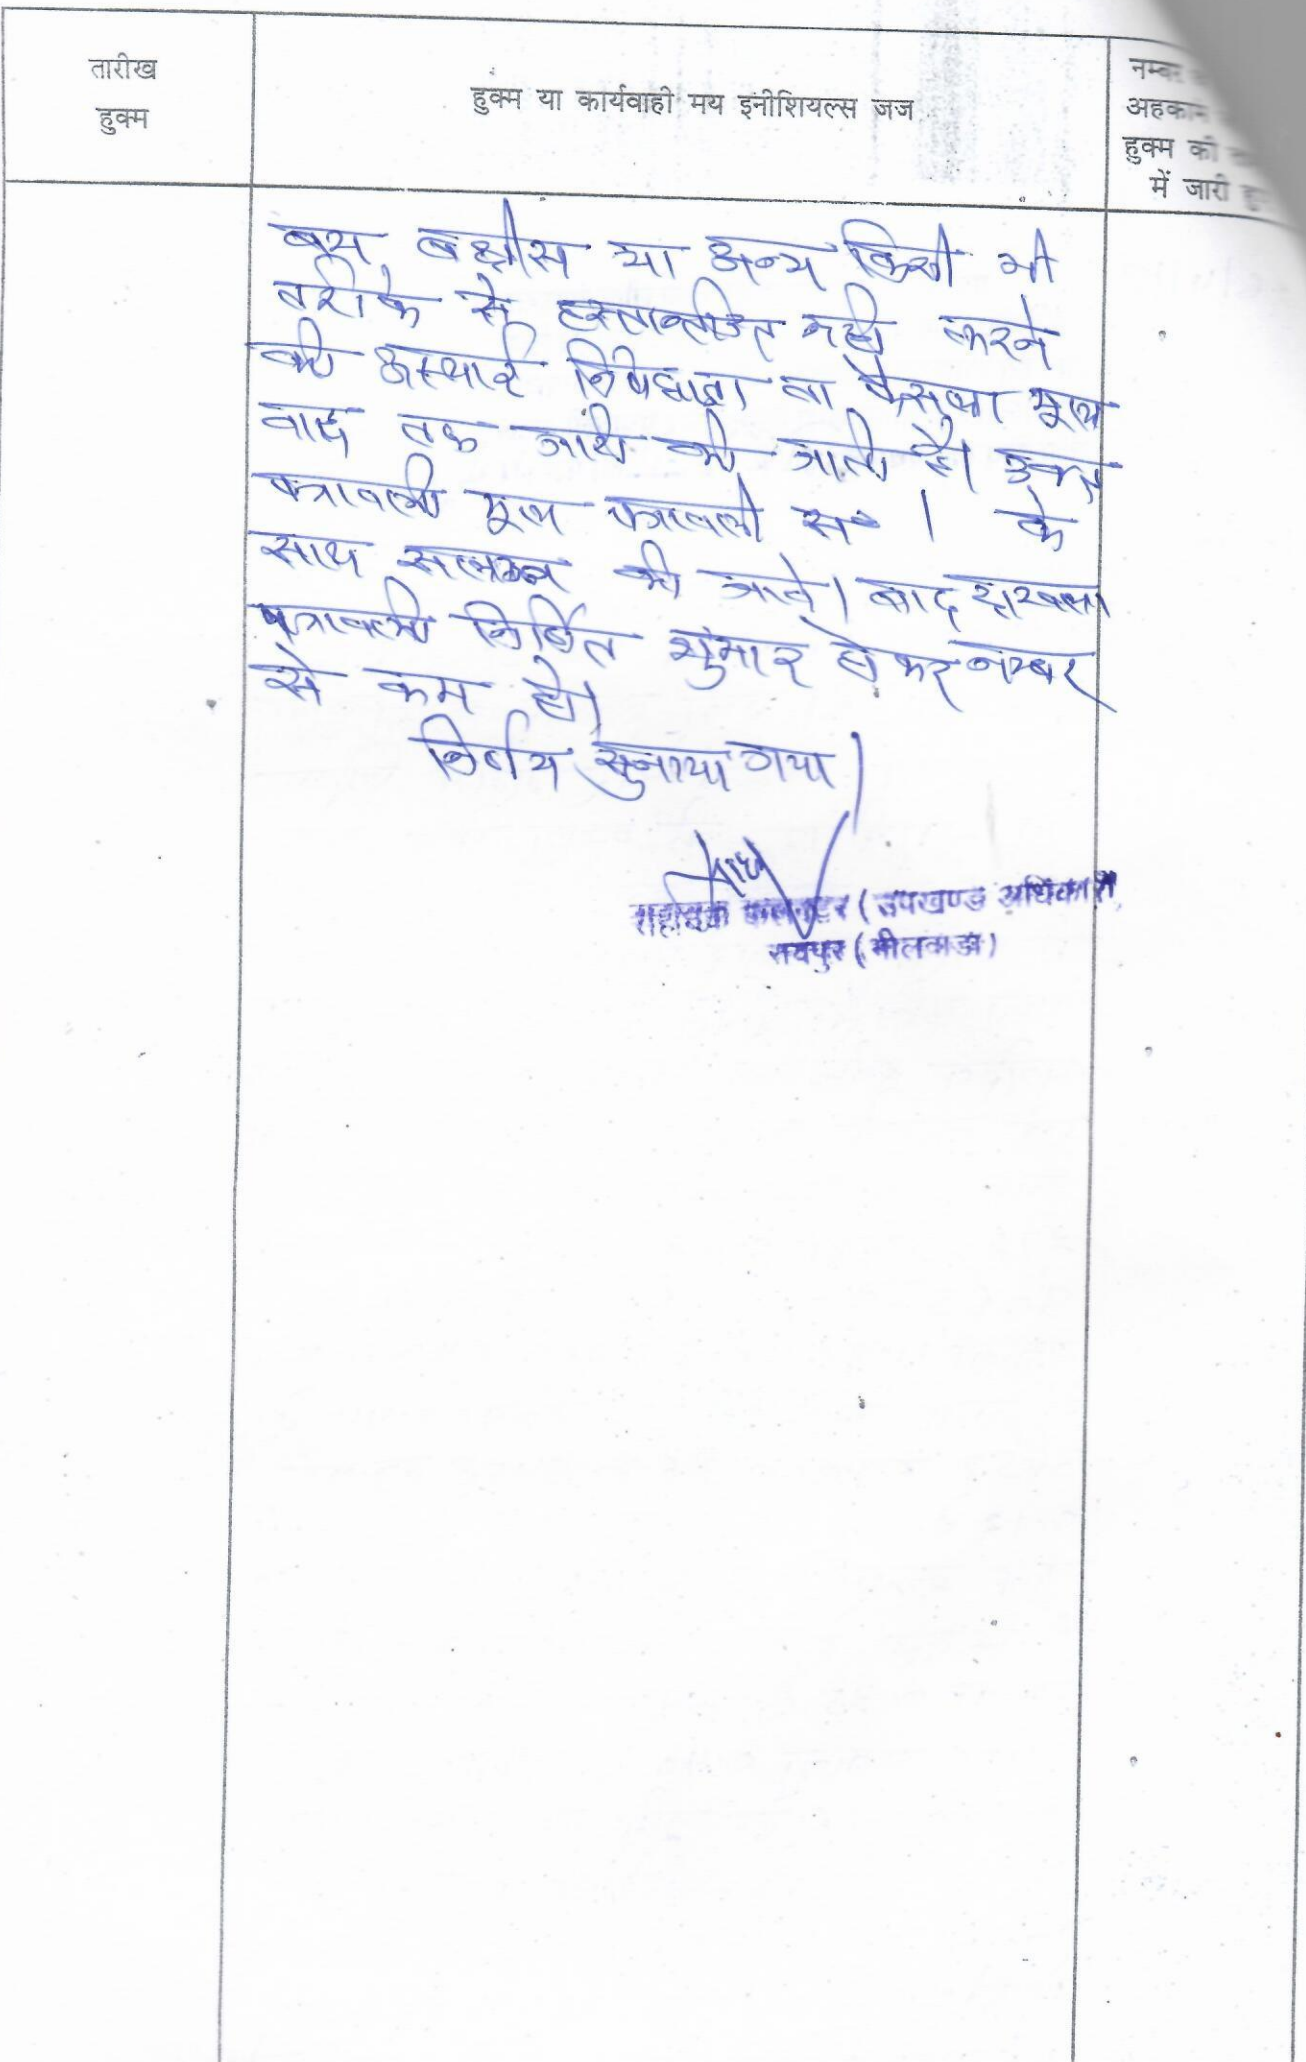 तारीख
हुक्म
हुक्म या कार्यवाही मय इनीशियल्स जज
नम्बर
अहकाम
हुक्म की
में जारी
बय, बक्षीस या अन्य किसी भी
तरीके से हस्तान्तरित नही करने
की अस्थाई निषेधाज्ञा ता फैसला मूल
वाद तक जारी की जाती है। उक्त
पत्रावली मूल पत्रावली स० 1 के
साथ सलग्न की जावे। बाद
पत्रावली निर्णित शुमार हो कर नम्बर
से कम हो।
निर्णय सुनाया गया।
सहायक कलक्टर (उपखण्ड अधिकारी)
रायपुर (भीलवाडा)